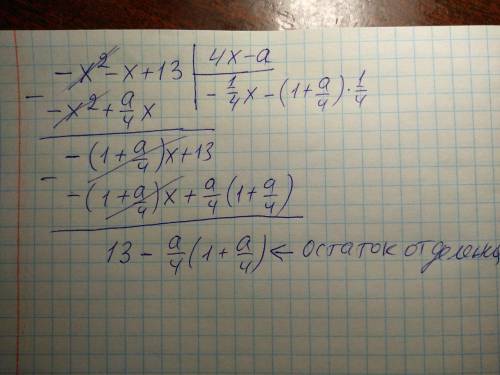 -x² - x + 13 | 4x - a
- -x² + a/4 x | -1/4 x - (1 + a/4) · 1/4
-(1 + a/4)x + 13
- -(1 + a/4)x + a/4 (1 + a/4)
13 - a/4 (1 + a/4) ← остаток от